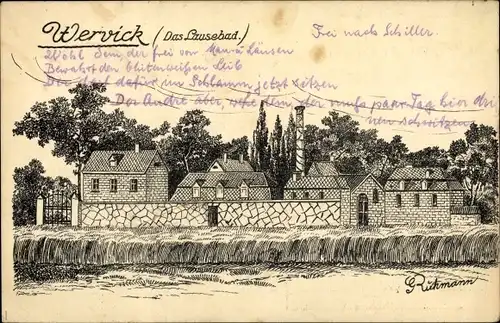 Wervick (Das Lausebad.)
Frei nach Schiller.
Wohl Dem, der frei von Man u Läusen
Bewahrt den blütenweißen Leib
Der darf dafür im Schlamm jetzt sitzen
Der Andre aber, der muß a paar Tag hier drin
nen schwitzen
G Rickmann